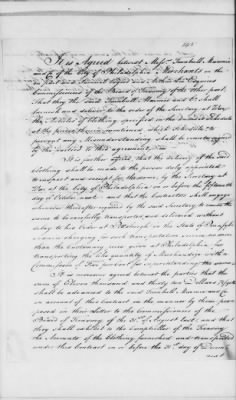 It is Agreed between Messrs Turnbull Marmie
and Co. of the City of Philadelphia Merchants on the
one Part and Samuel Osgood and Arthur Lee Esquires
Commissioners of the Board of Treasury of the other part,
That they the said Turnbull Marmie and Co. shall
furnish and deliver to the order of the Secretary at War
the Articles of Clothing specified in the Schedule
at the prices therein mentioned, which Schedule to
prevent any Misunderstanding shall be countersigned
by the parties to this agreement.
It is further agreed that the delivery of the said
Clothing shall be made to the person duly appointed
to inspect and receipt for the same, by the Secretary at
War at the City of Philadelphia on or before the fifteenth
day of October next, and that the Contractors shall engage
whenever thereafter required by the said Secretary to cause the
same to be carefully transported, and delivered without
delay to his Order at Pittsburgh in the State of Pennsylvania
charging no more transportation
than the customary rate given at Philadelphia, for
transporting the like quantity of Merchandize with a
Commission of Five per Cent for
It is moreover agreed between the parties that the
sum of Eleven thousand and thirty two Dollars
shall be advanced to the said Turnbull Marmie and Co.
on account of this Contract in the manner by them pro=
posed in their Letter to the Commissioners of the
Board of Treasury of the 31st of August last, and that
they shall exhibit to the Comptroller of the Treasury
the Accounts of the Clothing furnished and transported
under this Contract on or before the 31st day of December
next